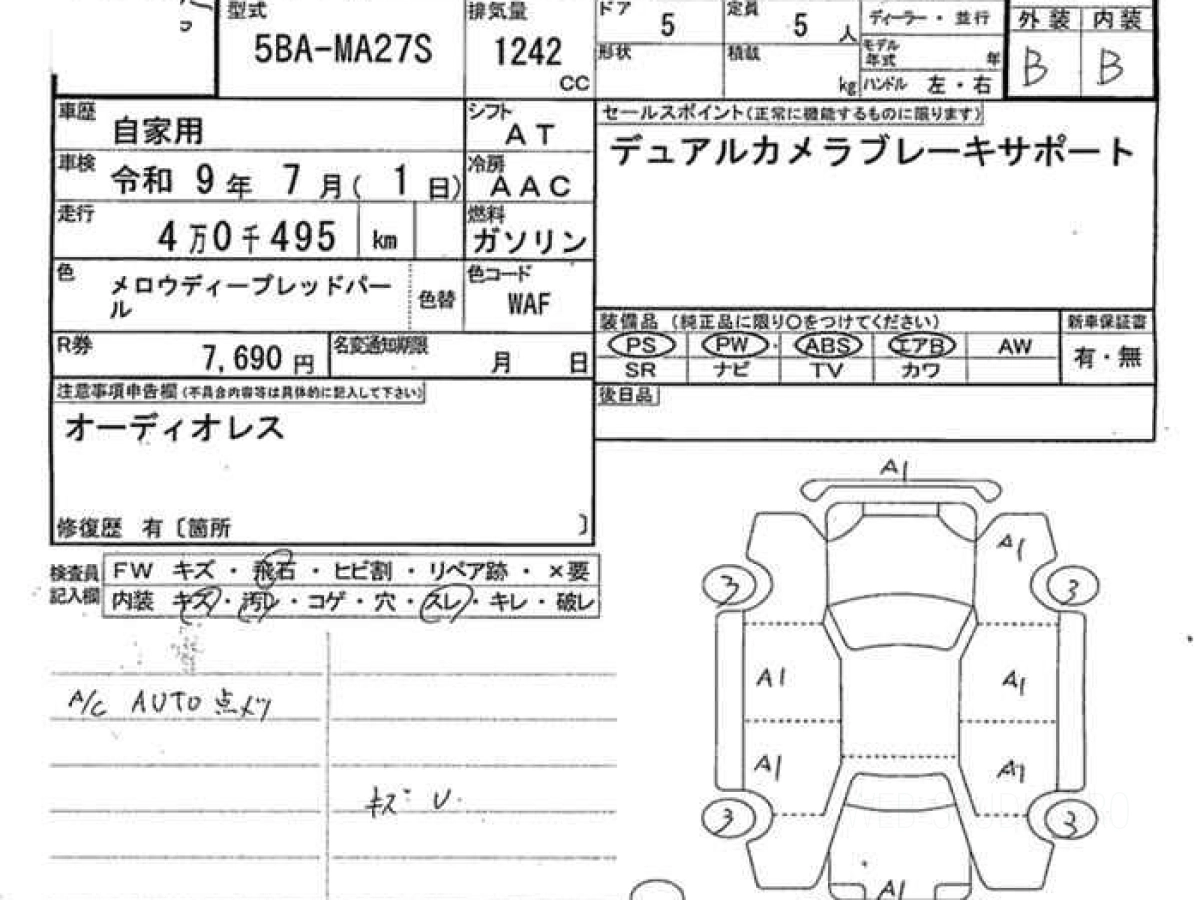 型式
5BA-MA27S
排気量
1242
CC
ドア
5
定員
5 人
形状
積載
kg
ディーラー・並行
モデル
年式
年
ハンドル 左・右
外装 内装
B B
車歴
自家用
シフト
AT
車検
令和 9 年 7 月( 1 日)
冷房
AAC
走行
4 万 0 千 495 km
燃料
ガソリン
色
メロウディープレッドパー
ル
色替
色コード
WAF
R券
7,690 円
名変通知期限
月 日
セールスポイント(正常に機能するものに限ります)
デュアルカメラブレーキサポート
装備品 (純正品に限り〇をつけてください)
PS PW ABS エアB AW
SR ナビ TV カワ
新車保証書
有・無
後日品
注意事項申告欄(不具合内容等は具体的に記入して下さい)
オーディオレス
修復歴 有〔箇所 〕
検査員
記入欄
FW キズ・飛石・ヒビ割・リペア跡・×要
内装 キズ・汚レ・コゲ・穴・スレ・キレ・破レ
A/C AUTO 点メツ
キズ U
A1
A1
3 3
A1 A1
A1 A1
3 3
A1